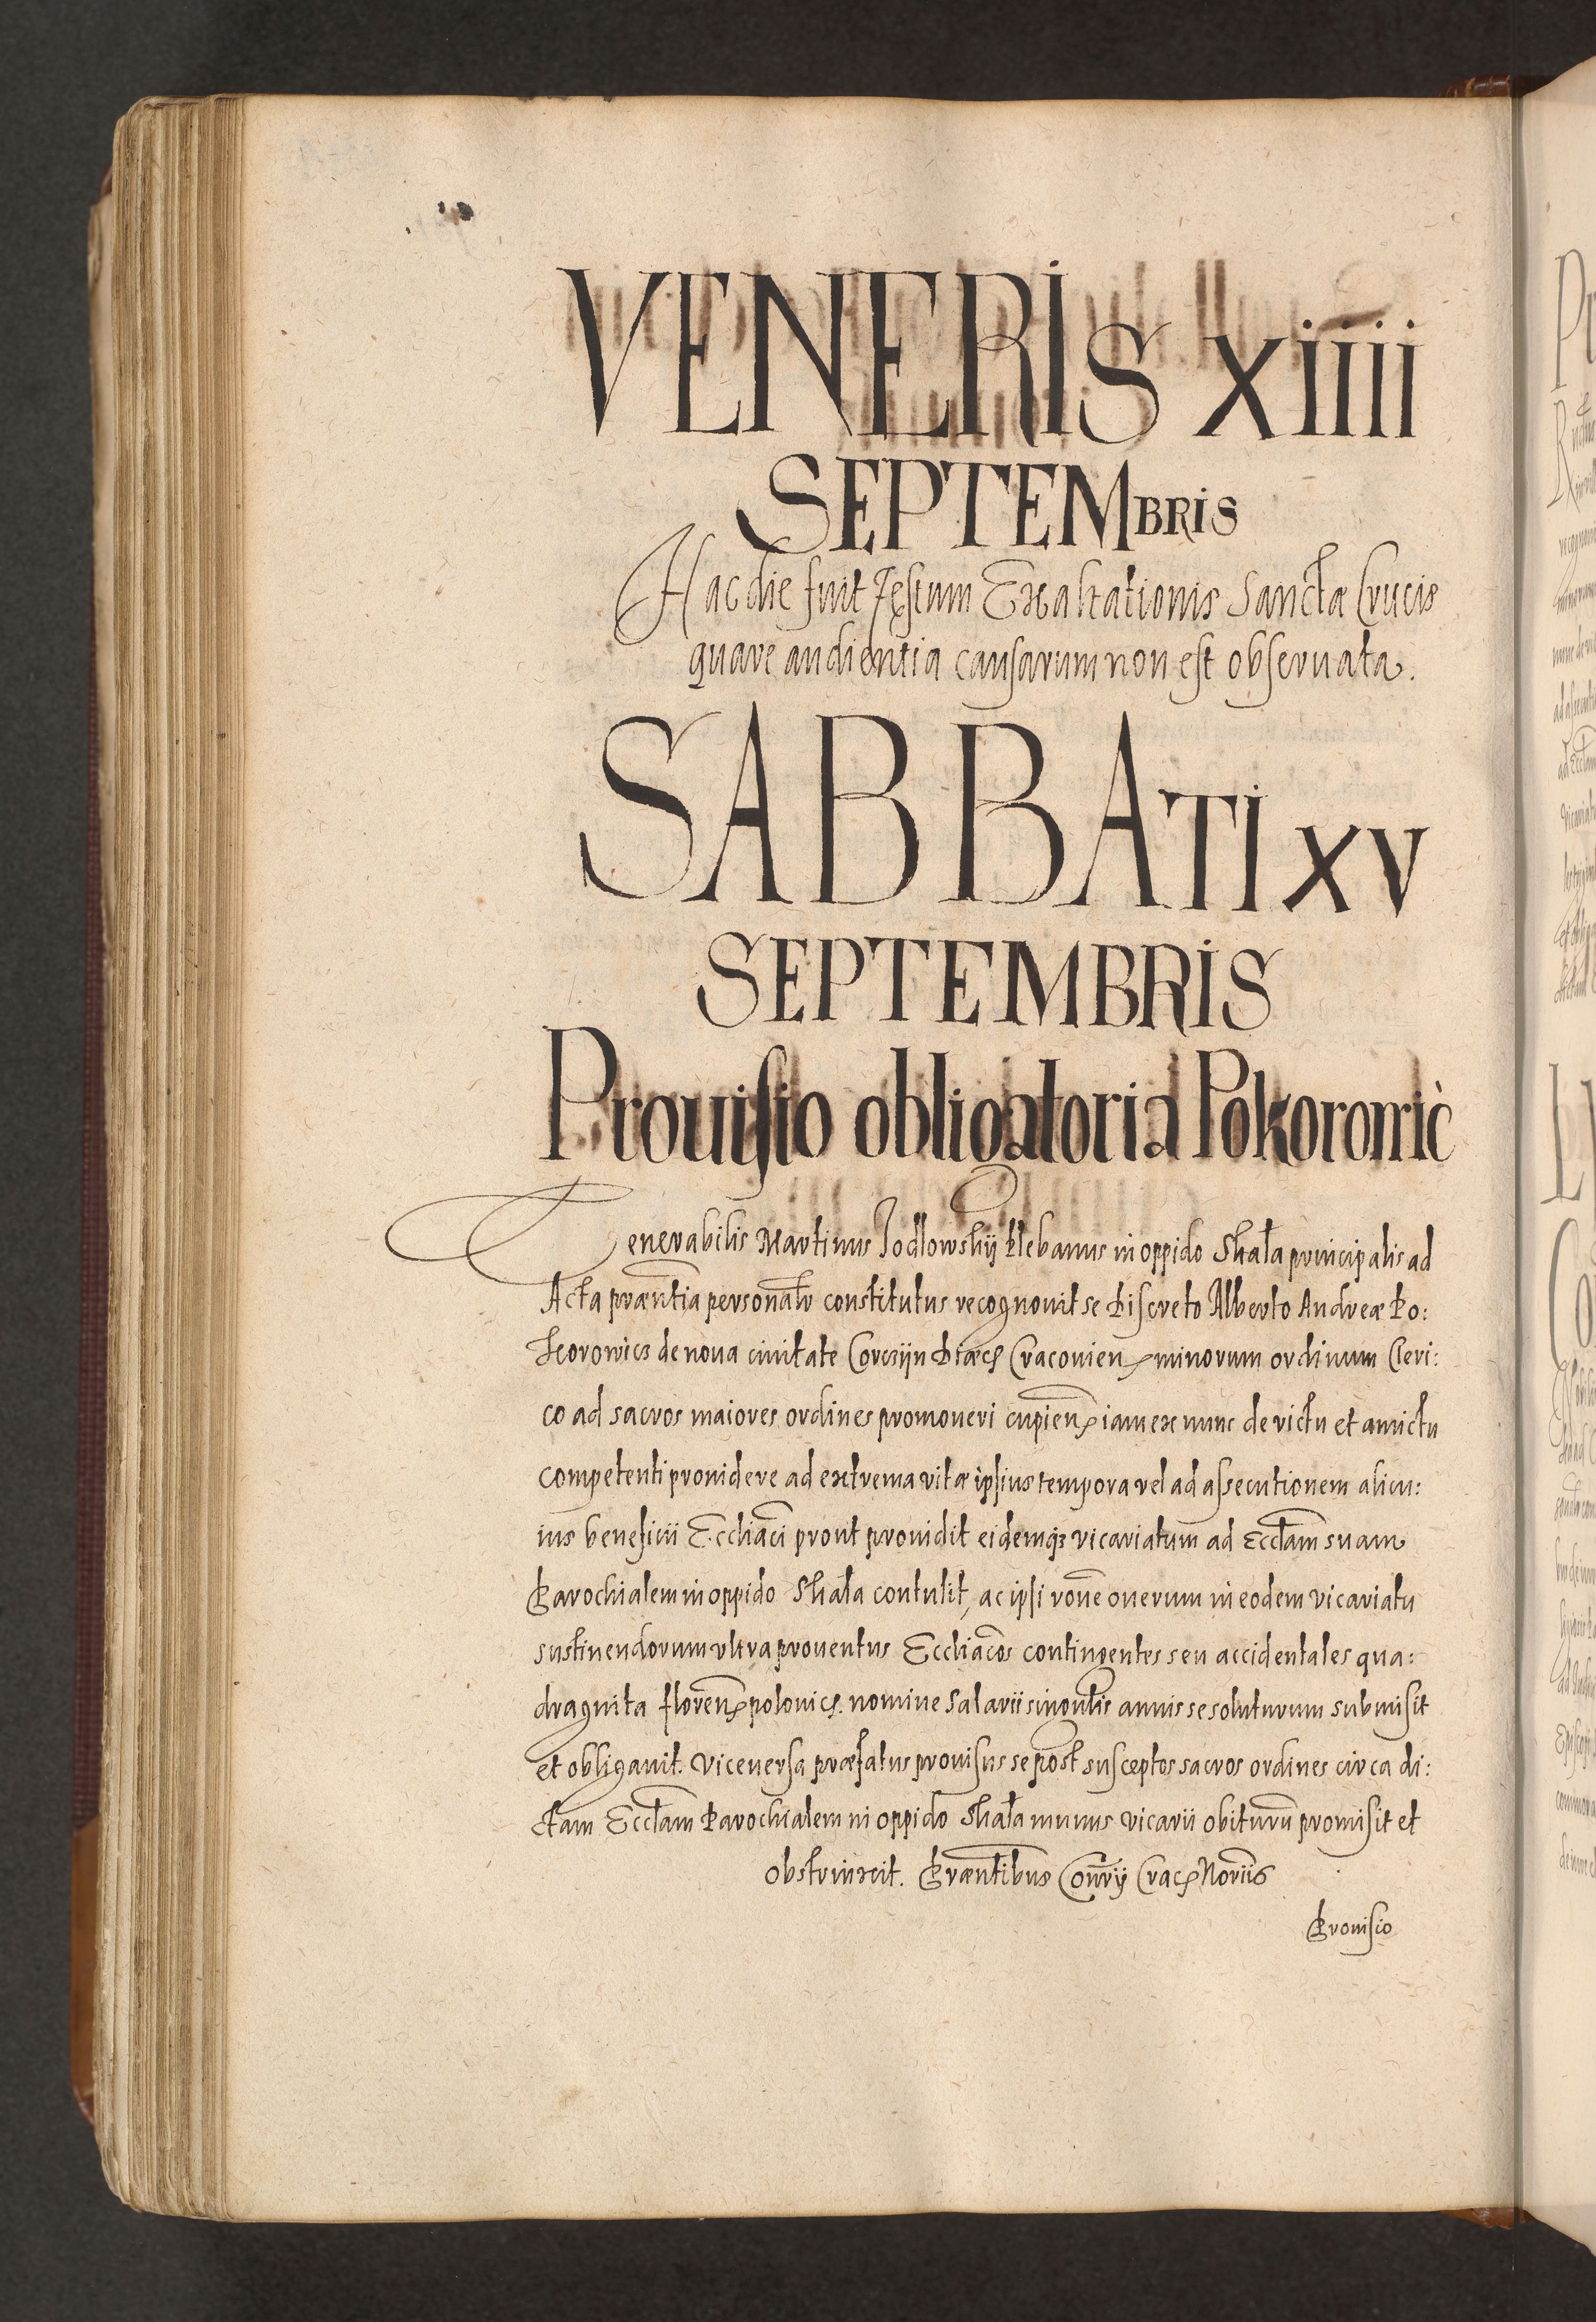 VENERIS xiiii
SEPTEMBRIS
Hac die fuit Festum Exaltationis Sanctæ Crucis
quare audientia causarum non est obseruata.
SABBATI XV
SEPTEMBRIS
Prouisio obligatoria Pokorowic
Venerabilis Martinus Jodlowskij Plebanus in oppido Skała principalis ad
Acta præntia personalr constitutus recognouit se Discreto Alberto Andreæ Po:
korowicz de noua ciuitate Corczÿn Diæc Cracouien minorum ordinum Cleri:
co ad sacros maiores ordines promoueri cupien iam ex nunc de victu et amictu
competenti prouidere ad extrema vitæ ipsius tempora vel ad assecutionem alicu:
ius beneficii Eccliaci prout prouidit eidemq3 vicariatum ad Ecclam suam
Parochialem in oppido Skała contulit, ac ipsi rone onerum in eodem vicariatu
sustinendorum vltra prouentus Eccliacos contingentes seu accidentales qua:
draginta floren polonic. nomine Salarii singulis annis se soluturum submisit
et obligauit. Viceuersa præfatus prouisus se post susceptos sacros ordines circa di:
ctam Ecclam Parochialem in oppido Skała munus vicarii obiturum promisit et
obstrinxit. Præntibus Conrij Crac Noriis
Prouisio